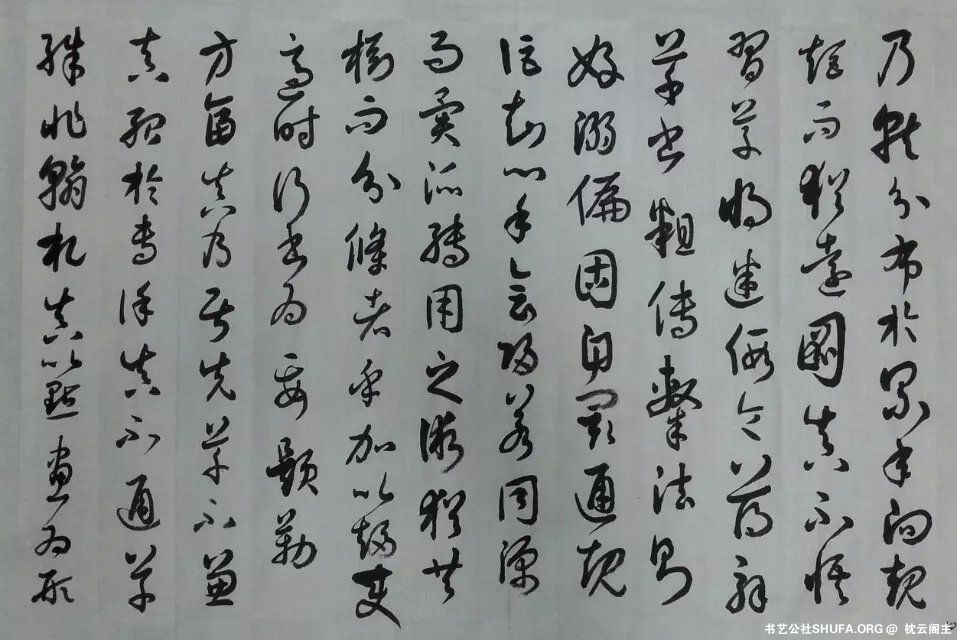 乃就分布於累年向規
矩而猶遠圖真不悟
習草將迷假令薄解
草書粗傳隸法則
好溺偏固自閡通規
詎知心手會歸若同源
而異派轉用之術猶共
樹而分條者乎加以趨變
適時行書為要題勒
方幅真乃居先草不兼
真殆於專謹真不通草
殊非翰札真以點畫為形
书艺公社SHUFA.ORG @ 枕云阁主